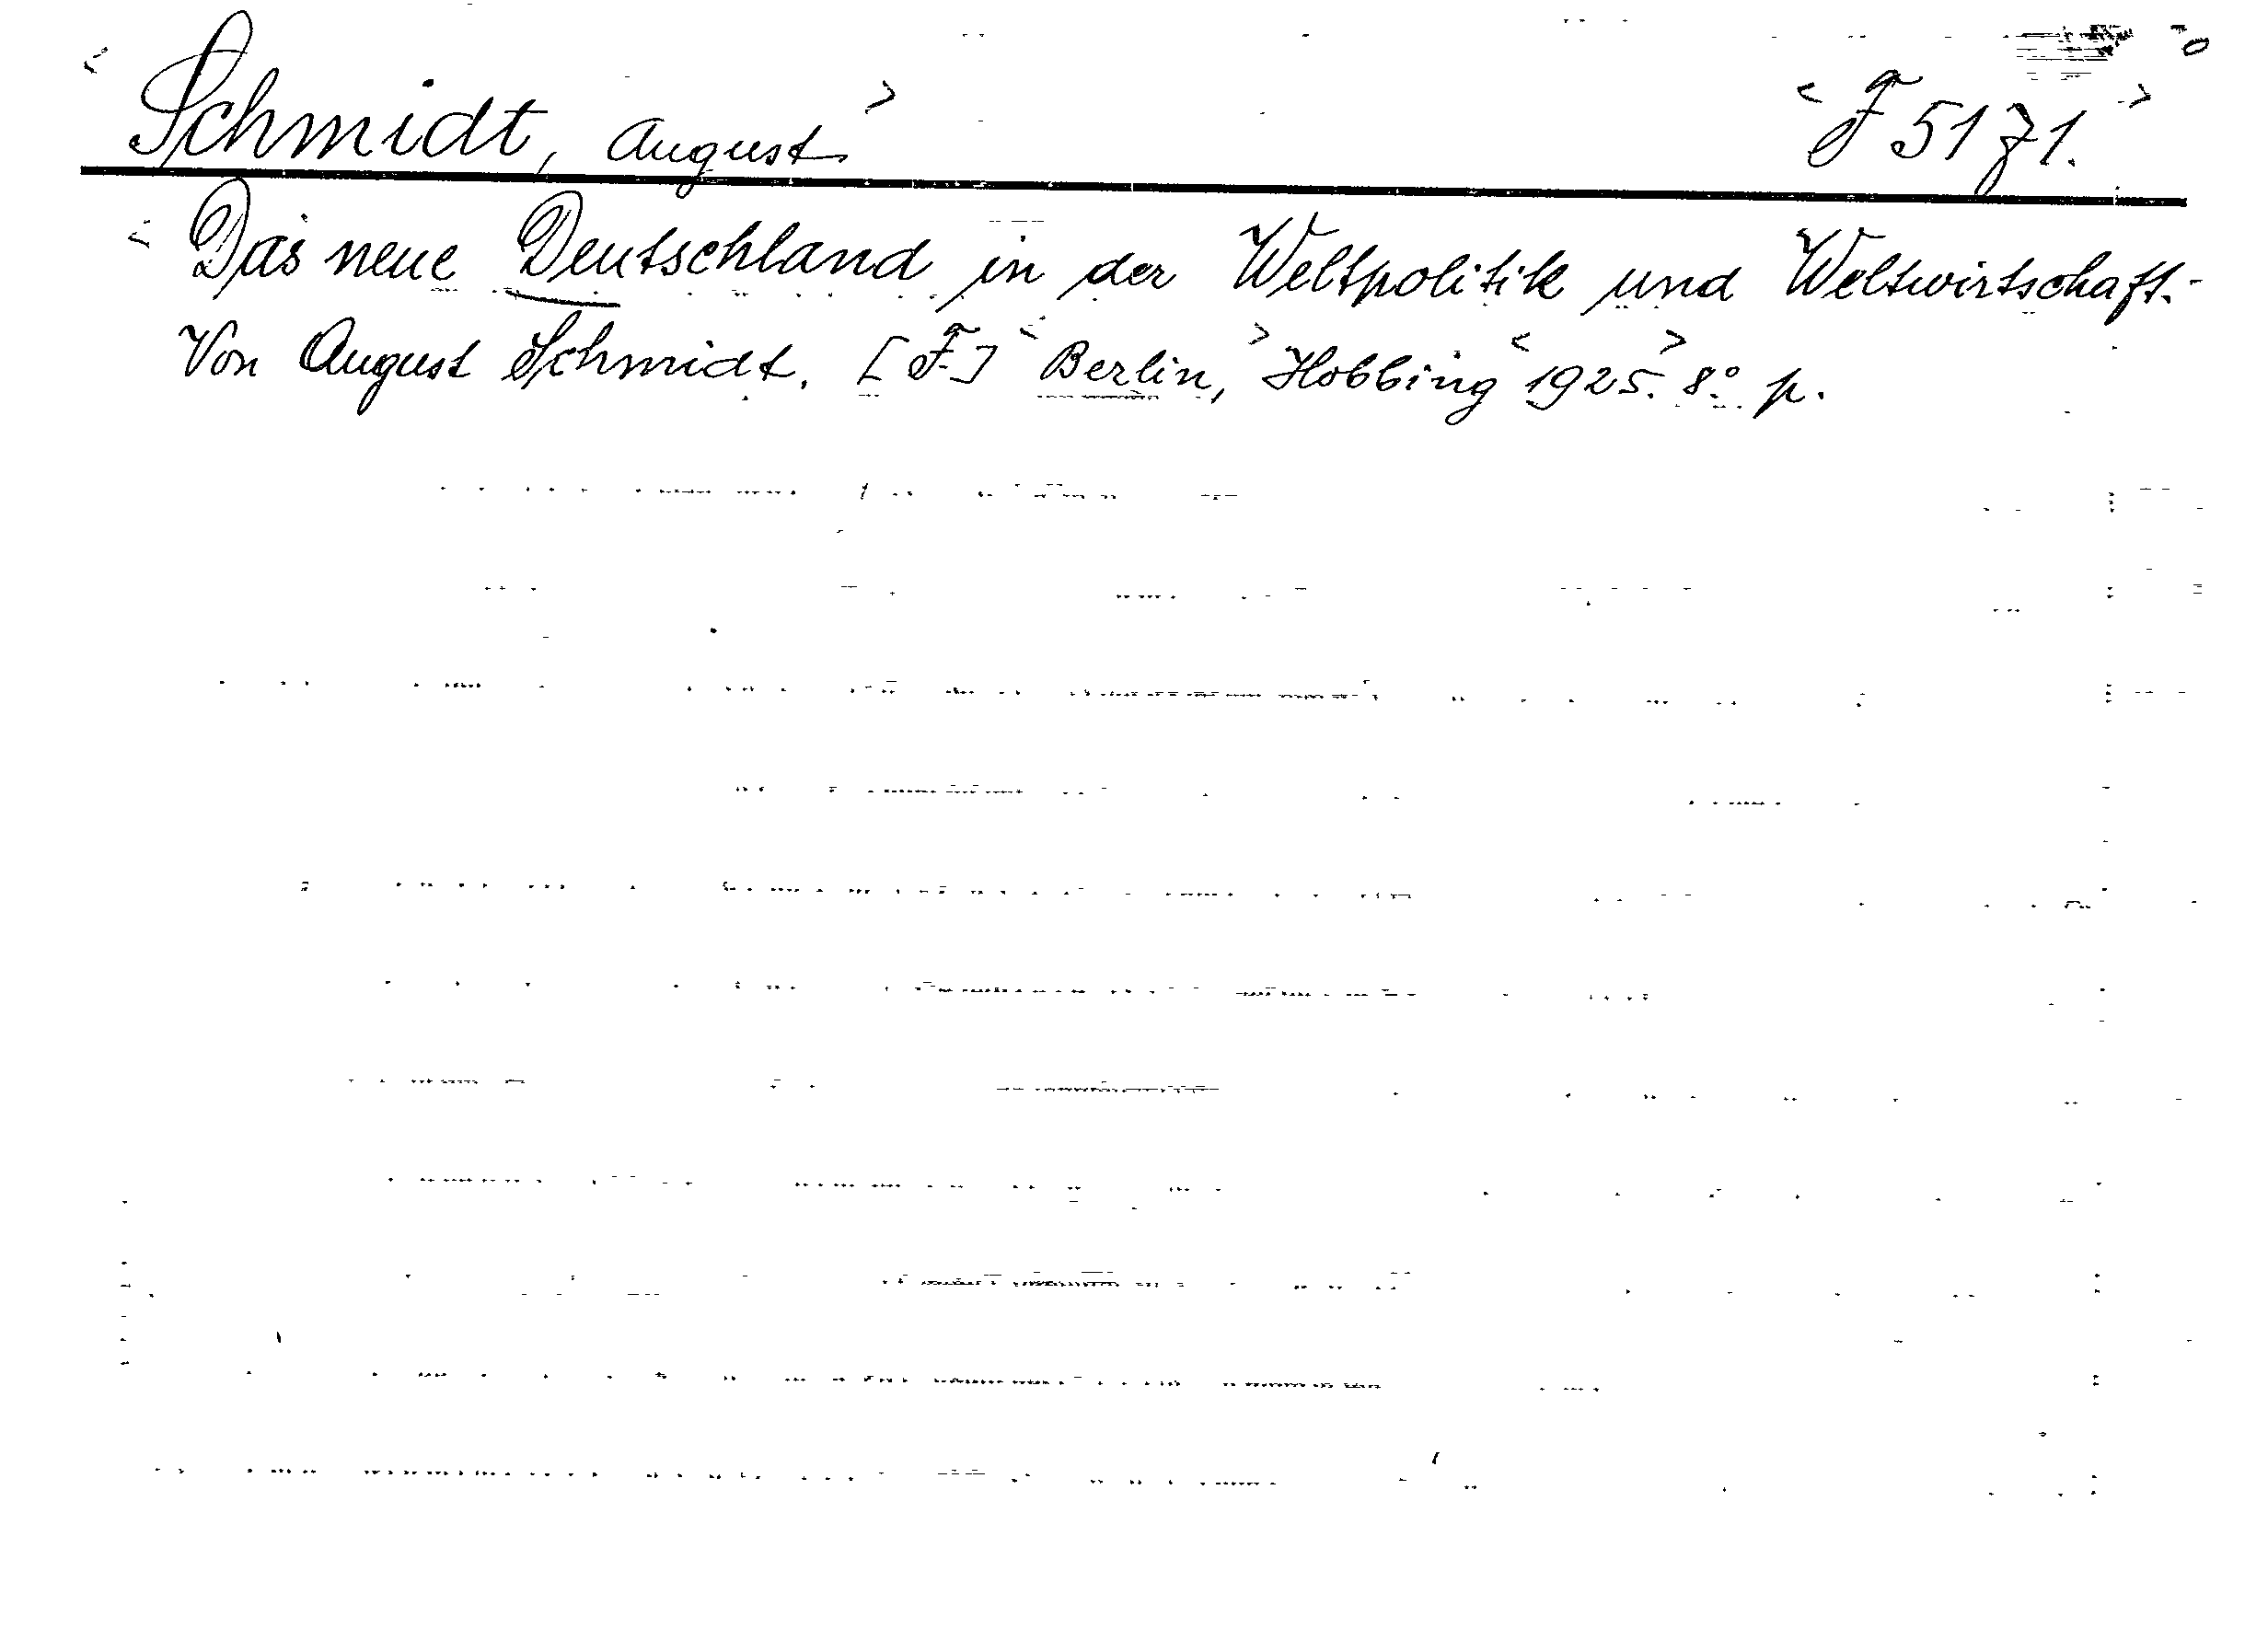 < Schmidt, August > < F 5171. >
< Das neue Deutschland in der Weltpolitik und Weltwirtschaft.-
Von August Schmidt. [F.] < Berlin, > Hobbing < 1925. > 8.° p.